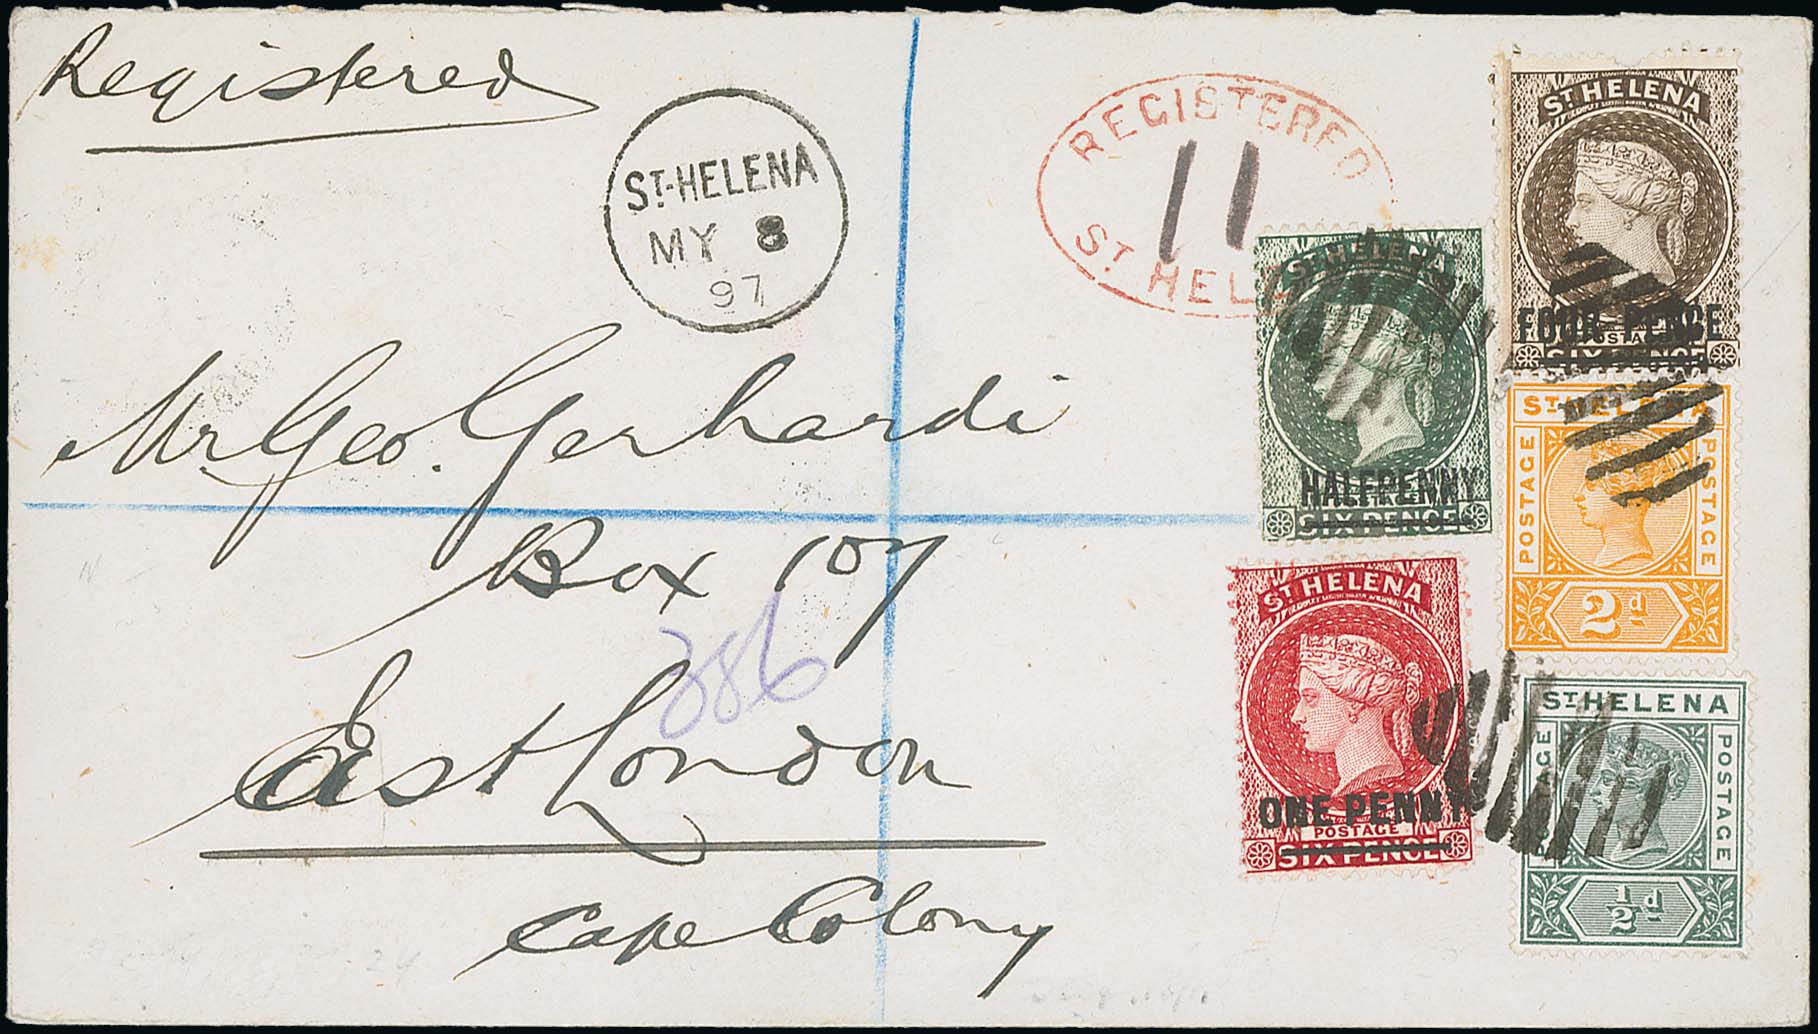 Registered
ST-HELENA
MY 8
97
REGISTERED
11
ST HELE
Mr Geo. Gerhardi
Box 107
386
East London
Cape Colony
ST HELENA
FOUR PENCE
POSTAGE
SIX PENCE
ST HELENA
HALFPENNY
SIX PENCE
ST HELENA
POSTAGE
POSTAGE
2d
ST HELENA
ONE PENNY
POSTAGE
SIX PENCE
ST HELENA
POSTAGE
POSTAGE
½d